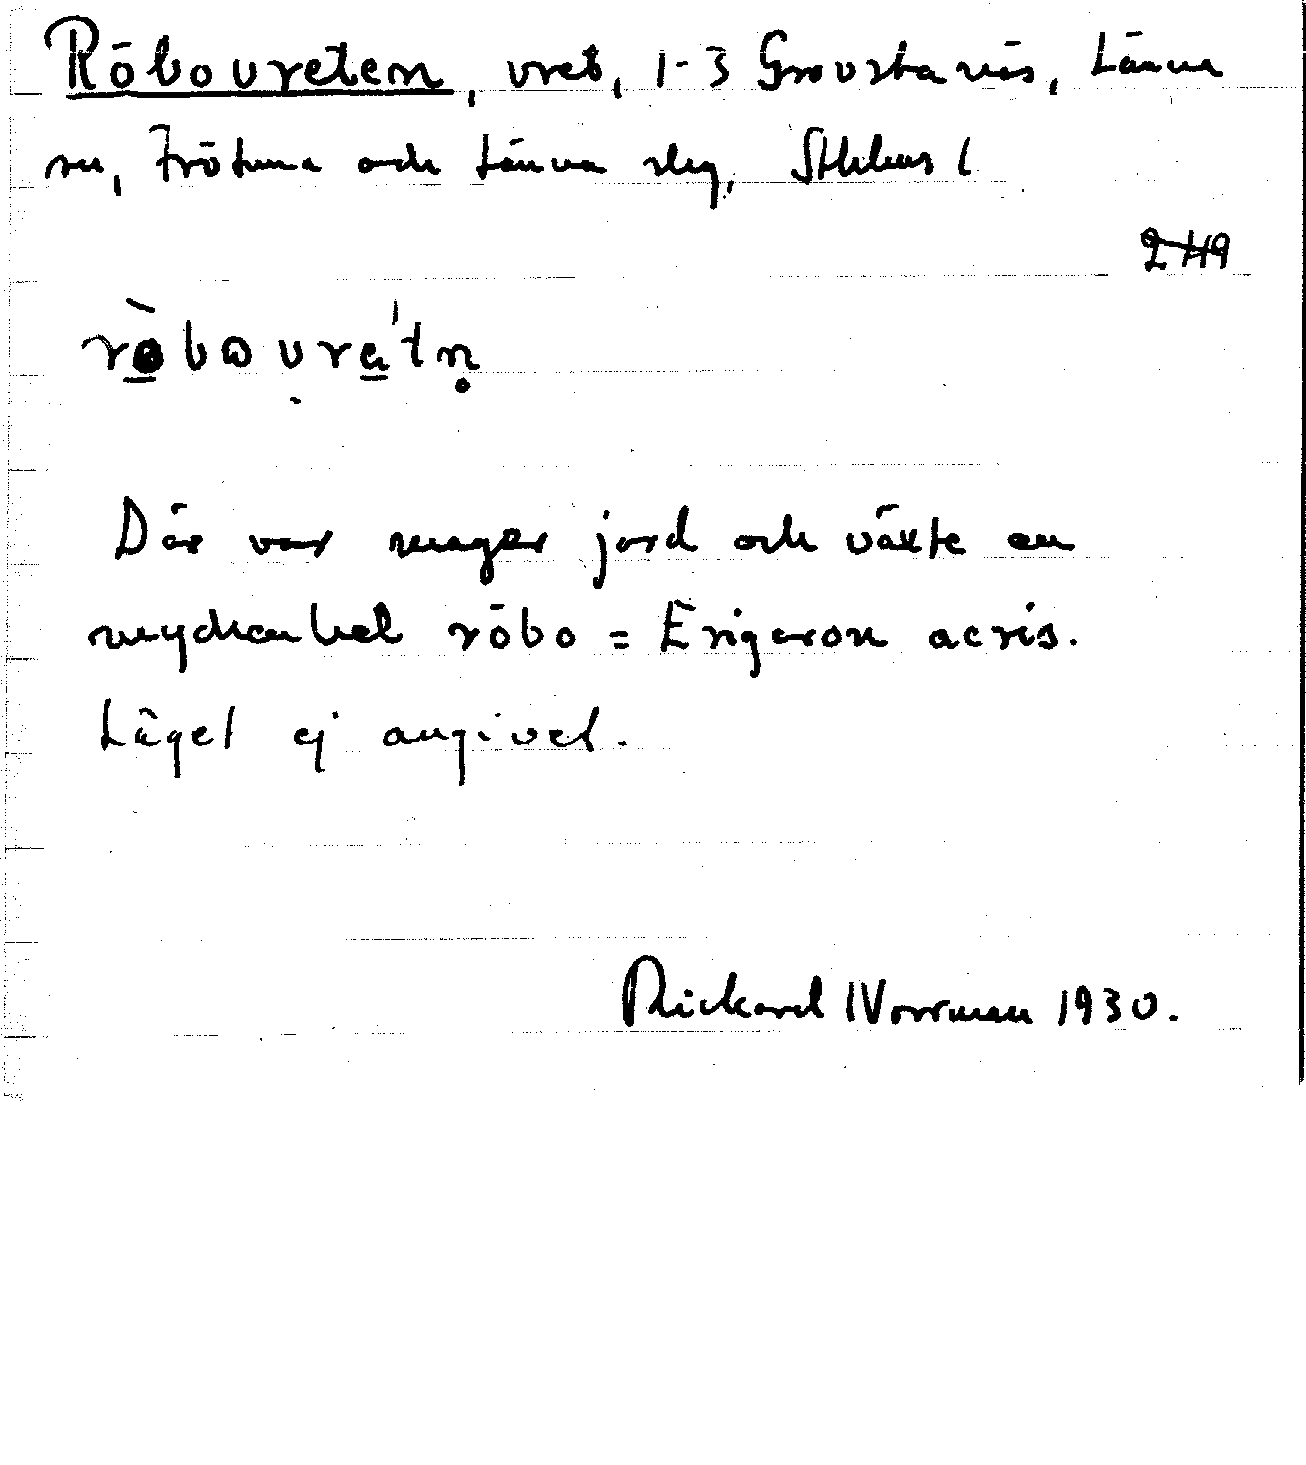 Röbovreten, vret, 1-3 Grovstanäs, Länna
sn, Frötuna och Länna slg, Sthlms l
2419
röbovrätn
Där var mager jord och växte en
mycken hel röbo = Erigeron acris.
Läget ej angivet.
Rickard Norrman 1930.